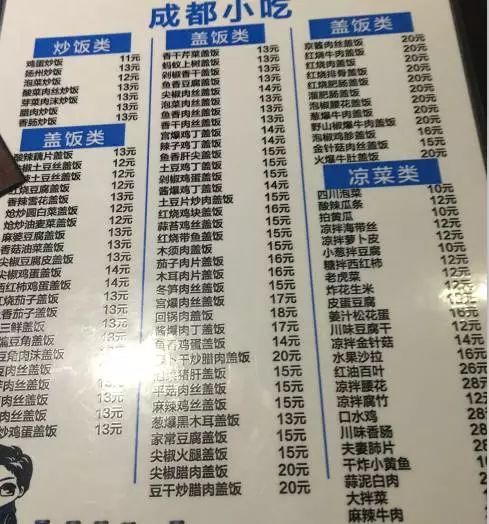 成都小吃
炒饭类
鸡蛋炒饭 11元
扬州炒饭 13元
泡菜炒饭 12元
酸菜肉丝炒饭 13元
芽菜肉沫炒饭 13元
腊肉炒饭
香肠炒饭 13元
盖饭类
酸辣藕片盖饭 13元
土豆丝盖饭 12元
土豆丝盖饭 12元
红烧豆腐盖饭 12元
香辣雪花盖饭 13元
炝炒圆白菜盖饭 12元
炝炒油麦菜盖饭 12元
麻婆豆腐盖饭 12元
香菇油菜盖饭 13元
尖椒豆腐皮盖饭 13元
尖椒鸡蛋盖饭 14元
西红柿鸡蛋盖饭 14元
红烧茄子盖饭 13元
土香茄子盖饭 13元
三鲜盖饭 13元
扁豆角盖饭
豆角肉沫盖饭
肉丝盖饭 13元
肉丝盖饭 13元
肉丝盖饭 13元
炒鸡蛋盖饭 13元
盖饭类
香干芹菜盖饭 13元
蚂蚁上树盖饭 13元
剁椒香干盖饭 13元
鱼香肉丝盖饭
尖椒肉丝盖饭
泡菜肉丝盖饭
鱼香肉丝盖饭
香干肉丝盖饭 13元
宫爆鸡丁盖饭 14元
辣子鸡丁盖饭 14元
鱼香肝尖盖饭
土豆鸡丁盖饭
剁椒鸡蛋盖饭
酱爆鸡丁盖饭 14元
土豆片炒肉盖饭
红烧鸡块盖饭
蒜苔鸡丝盖饭
红烧带鱼盖饭
木须肉盖饭
茄子肉片盖饭
木耳肉片盖饭
冬笋肉丝盖饭 15元
宫爆肉丝盖饭
回锅肉盖饭 18元
酱爆肉丁盖饭 17元
鱼香鸡蛋盖饭 14元
卜干炒腊肉盖饭 20元
猪肝盖饭 15元
平菇肉丝盖饭 15元
麻辣鸡丝盖饭 15元
葱爆黑木耳盖饭 13元
家常豆腐盖饭 15元
尖椒火腿盖饭 15元
尖椒腊肉盖饭 20元
豆干炒腊肉盖饭 20元
盖饭类
京酱肉丝盖饭 20元
红烧牛肉盖饭 20元
红烧肉盖饭
红烧排骨盖饭 20元
红烧肥肠盖饭 20元
溜肥肠盖饭 20元
泡椒腰花盖饭 20元
葱爆牛肉盖饭 20元
野山椒爆牛肉盖饭 20元
泡椒鸡胗盖饭 16元
金针菇肉丝盖饭 15元
火爆牛肚盖饭 20元
凉菜类
四川泡菜 10元
酸辣瓜条 12元
拍黄瓜 10元
凉拌海带丝 12元
凉拌萝卜皮 12元
小葱拌豆腐 10元
糖拌西红柿 12元
老虎菜 12元
炸花生米 12元
皮蛋豆腐 12元
姜汁松花蛋 14元
川味豆腐干 12元
凉拌金针菇 14元
水果沙拉 16元
红油百叶 26元
凉拌腰花 28元
凉拌腐竹 12元
口水鸡
川味香肠
夫妻肺片
干炸小黄鱼
蒜泥白肉
大拌菜
麻辣牛肉